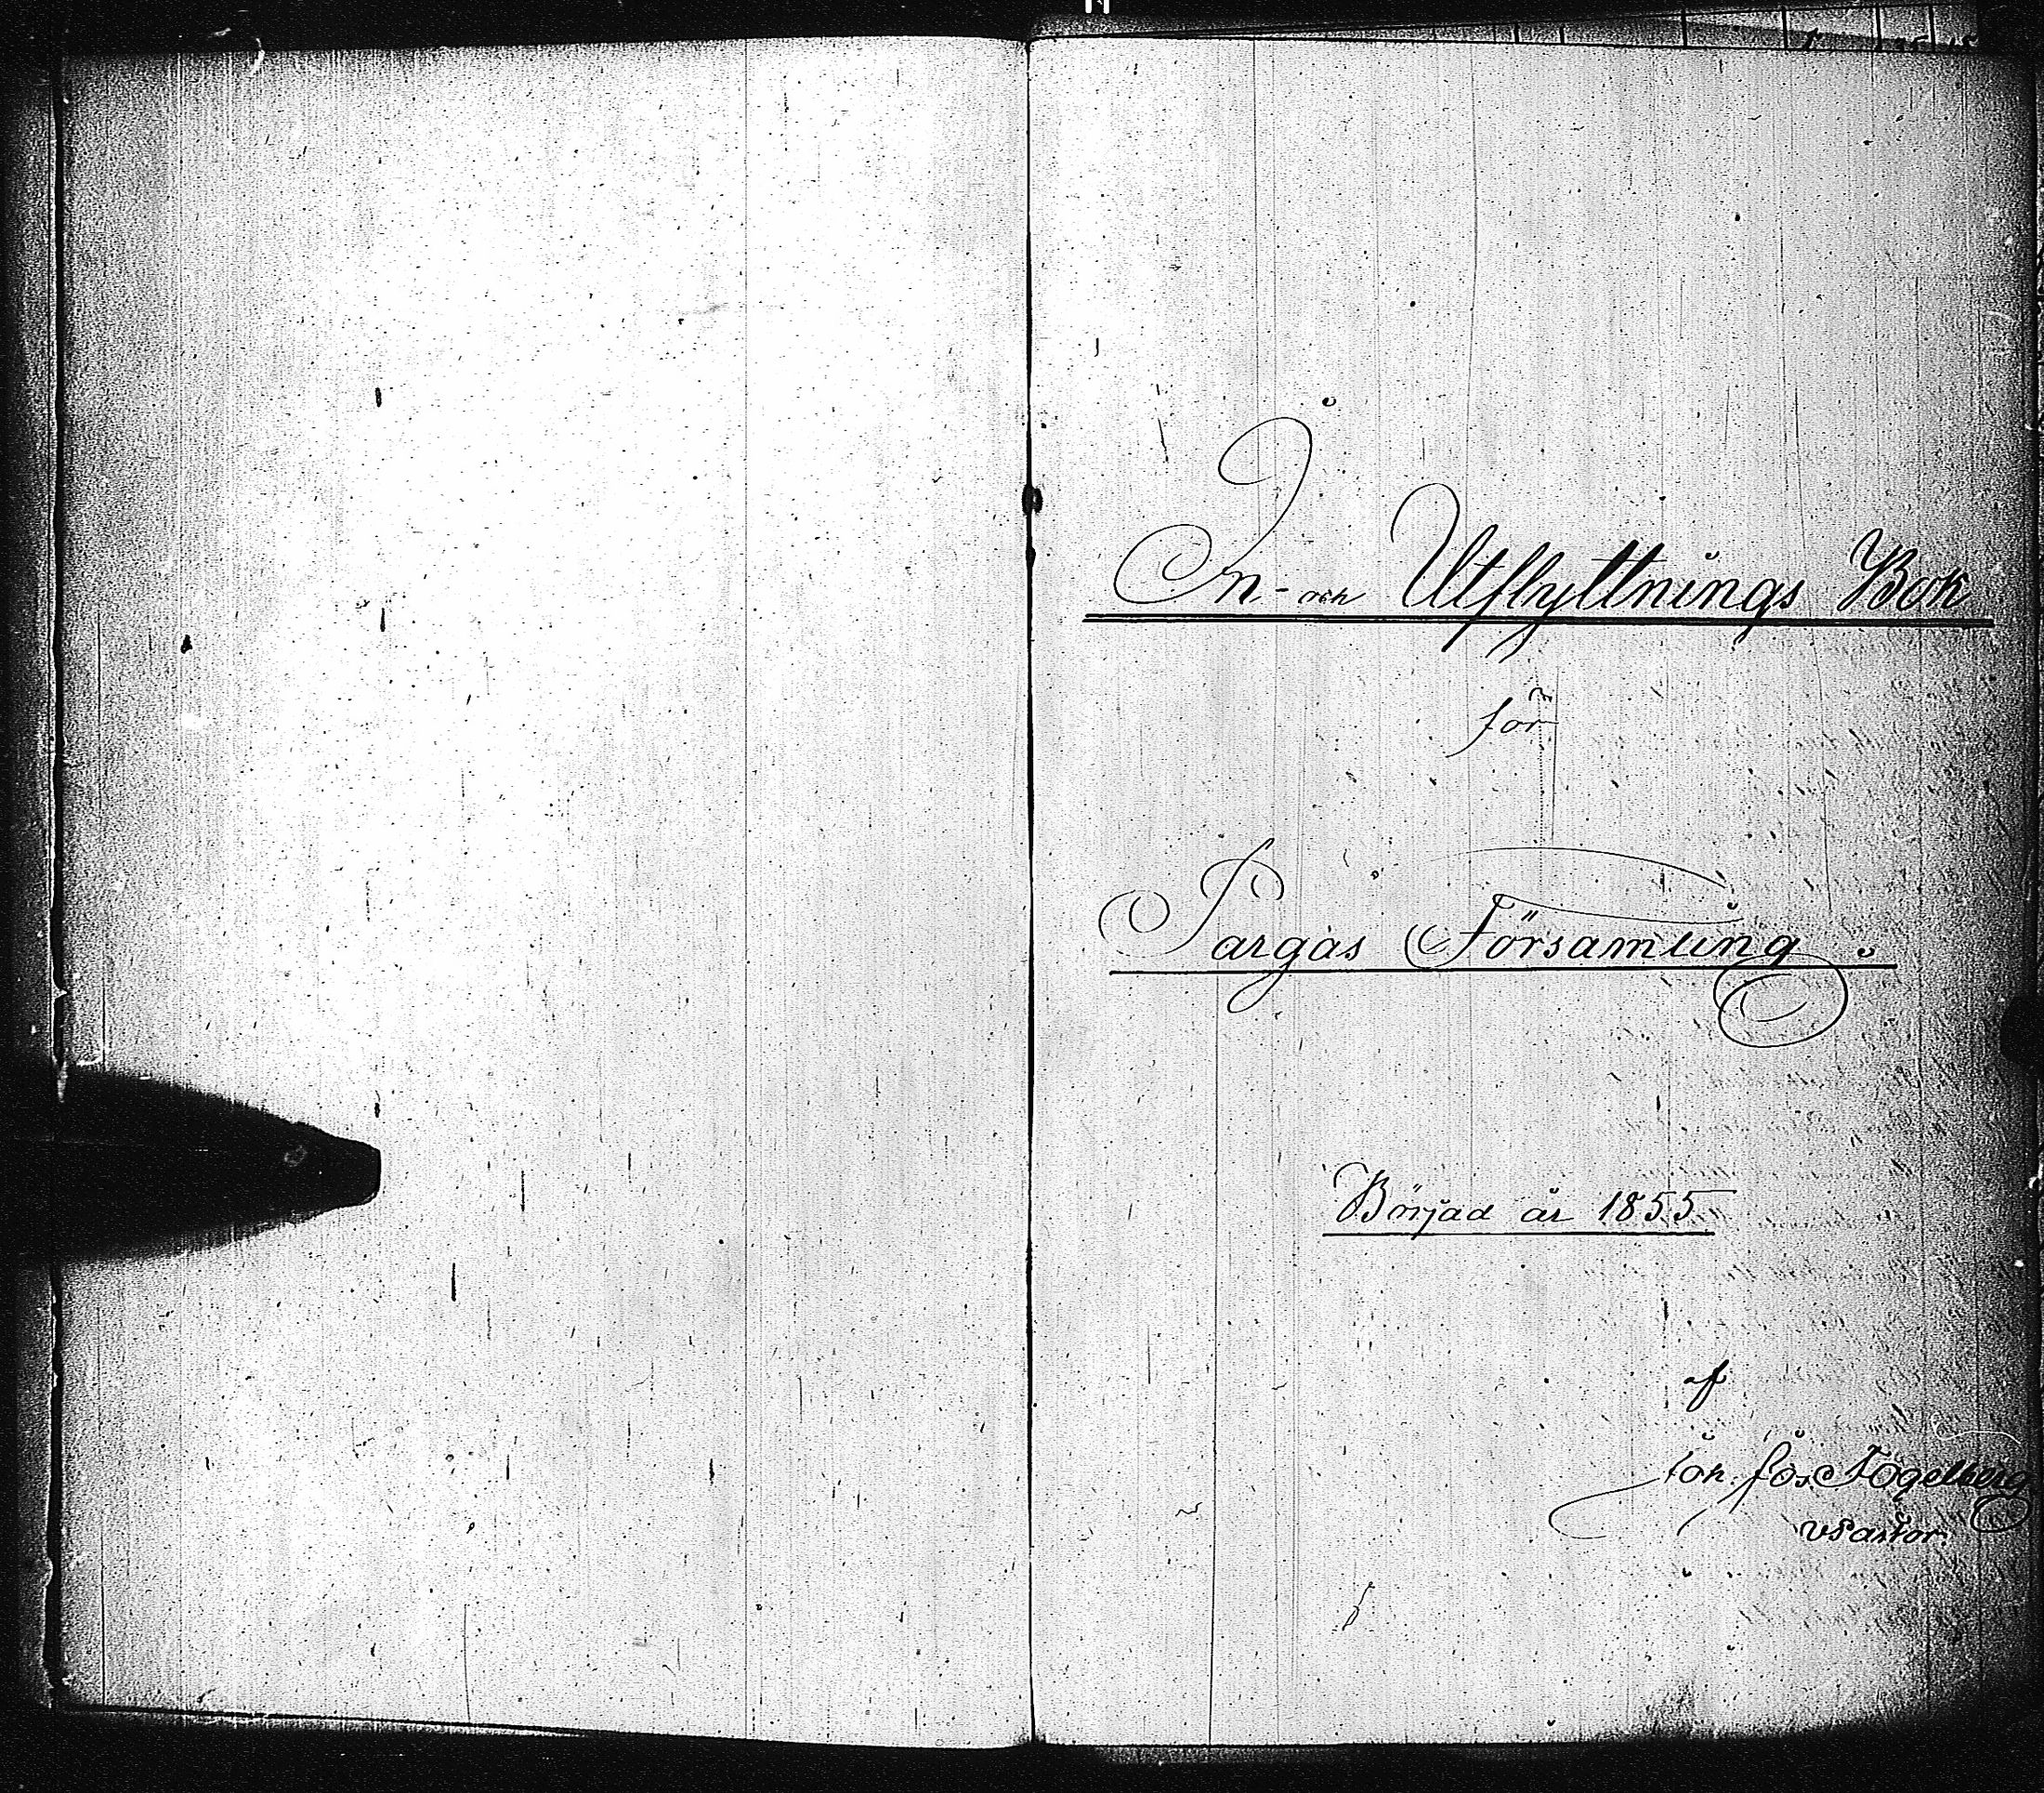 In- och Utflyttnings Bok
för
Pargas Församling
Börjad år 1855
af
Joh. Jos. Fogelberg
v Pastor.